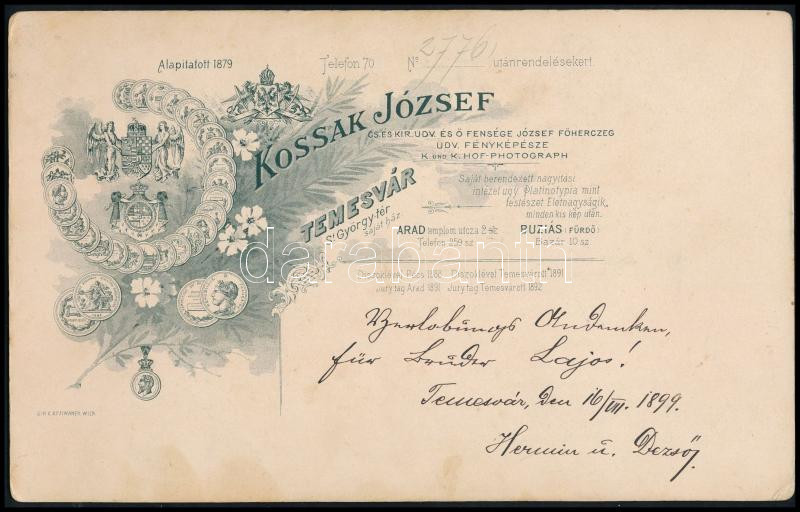 Alapitatott 1879
Telefon 70
Nº 2776 utánrendelésekert.
KOSSAK JÓZSEF
CS. ÉS KIR. UDV. ÉS Ő FENSÉGE JÓZSEF FŐHERCZEG
UDV. FÉNYKÉPÉSZE
K. UND K. HOF-PHOTOGRAPH
TEMESVÁR
Sᵗ György-tér
saját ház
Saját berendezett nagyitási
intézet ugy Platinotypia mint
festészet Eletnagyságik,
minden kis kép után.
ARAD templom utcza 2 sz.
Telefon 259 sz
BUZIÁS (FÜRDŐ)
Bazár 10 sz
Diszoklével Pécs 1888 Diszoklével Temesvárott 1891
Jury tag Arad 1891 Jury tag Temesvárott 1892
darabanth
Verlobungs Andenken,
für Bruder Lajos!
Temesvár, den 16/VII. 1899.
Hermin u. Dezső
WIEN